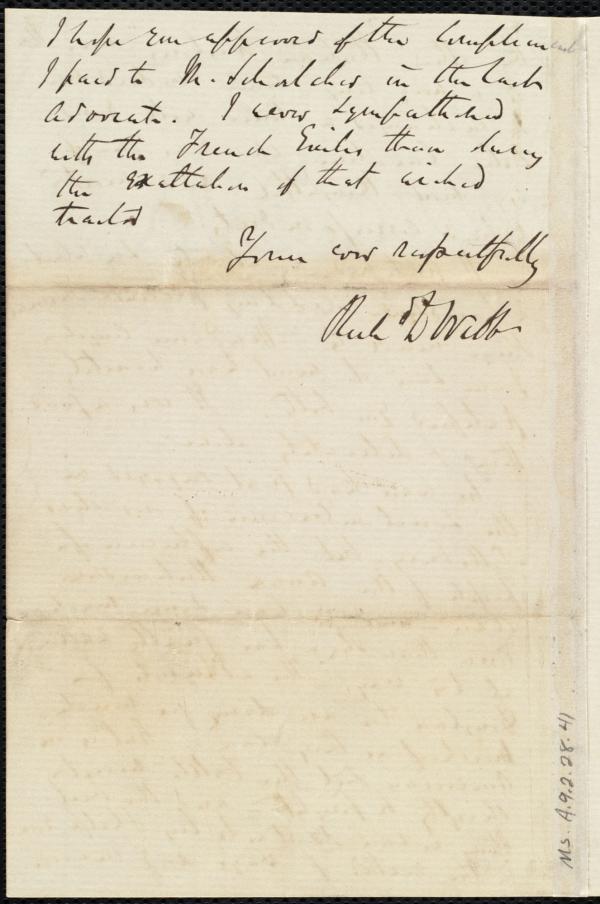 I hope you approved of the compliment
I paid to M. Schoelcher in the last
Advocate. I never sympathised
with the French Exiles than during
the exaltation of that wicked
traitor
Yours ever respectfully
Richd D Webb
Ms. A.9.2.28.41